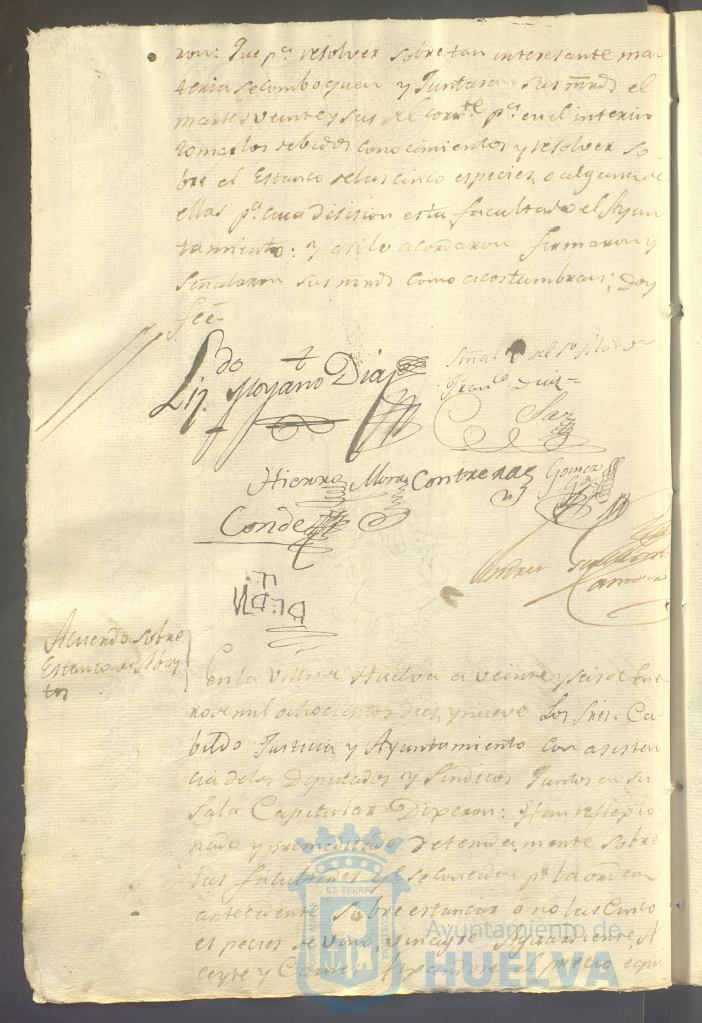 ron: Que pª resolver sobre tan interesante ma-
teria se comboquen y Juntaran sus mrds el
martes veinte y seis del corrte pª en el interin
tomar los debidos conocimientos y resolver so-
bre el Estanco de las cinco especies, o alguna de
ellas pª cuia disision esta facultado el Ayun-
tamiento: y asi lo acordaron firmaron y
señalaron sus mrds como acostumbran; Doy
fee
Lizdo Moyano Diaz
Señal del Sr
Franco Diaz
Saz
Hierro Mora Contreras Gomez
Conde
Andres
Camacho
Acuerdo sobre
Estanco de Abas
tos
En la Villa de Huelva a veinte y seis de Ene-
ro de mil ochocientos diez y nueve Los Sres. Ca-
bildo Justicia y Ayuntamiento con asisten-
cia de los Diputados y Sindicos Juntos en su
Sala Capitular Dixeron: Han reflexio
nado y premeditado detenidamente sobre
las facultades qe se conceden pr la orden
antecedente sobre estancar o no las Cinco
especies de vino, vinagre, Aguardiente, A
ceyte y Carne
el precio equi
ET TERRA
Ayuntamiento de
HUELVA